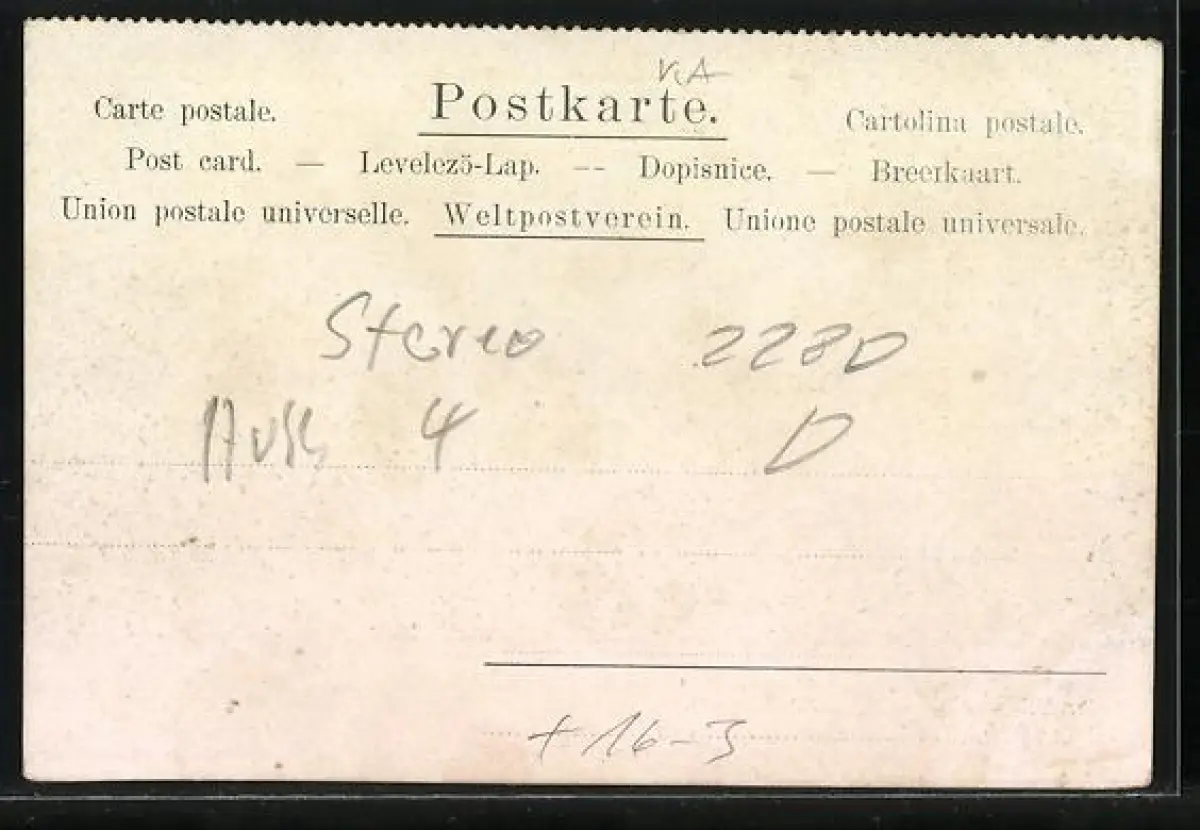 V.A
Carte postale. Postkarte. Cartolina postale.
Post card. — Levelező-Lap. -- Dopisnice. — Breefkaart.
Union postale universelle. Weltpostverein. Unione postale universale.
Stereo 228D
4 D
+ 16-3